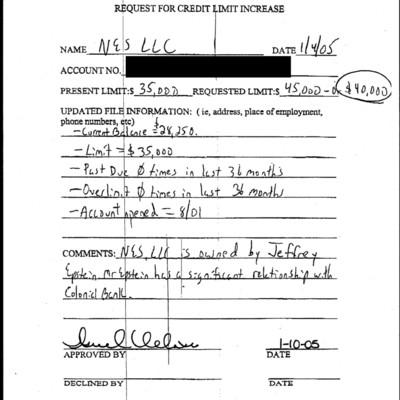 REQUEST FOR CREDIT LIMIT INCREASE
NAME NES LLC DATE 1/4/05
ACCOUNT NO.
PRESENT LIMIT:$ 35,000 REQUESTED LIMIT:$ 45,000 - or $40,000
UPDATED FILE INFORMATION: ( ie, address, place of employment,
phone numbers, etc)
- Current Balance = $28,250.
- Limit = $35,000
- Past Due Ø times in last 36 months
- Overlimit Ø times in last 36 months
- Account opened = 8/01
COMMENTS: NES, LLC is owned by Jeffrey
Epstein. Mr Epstein has a significant relationship with
Colonial Bank.
1-10-05
APPROVED BY DATE
DECLINED BY DATE